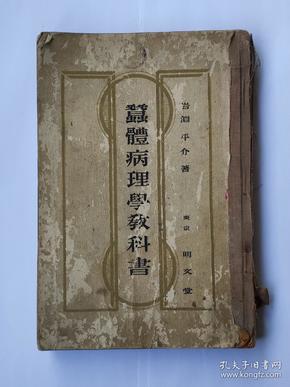 岩淵平介 著
東京 明文堂
蠶體病理學敎科書
孔夫子旧书网